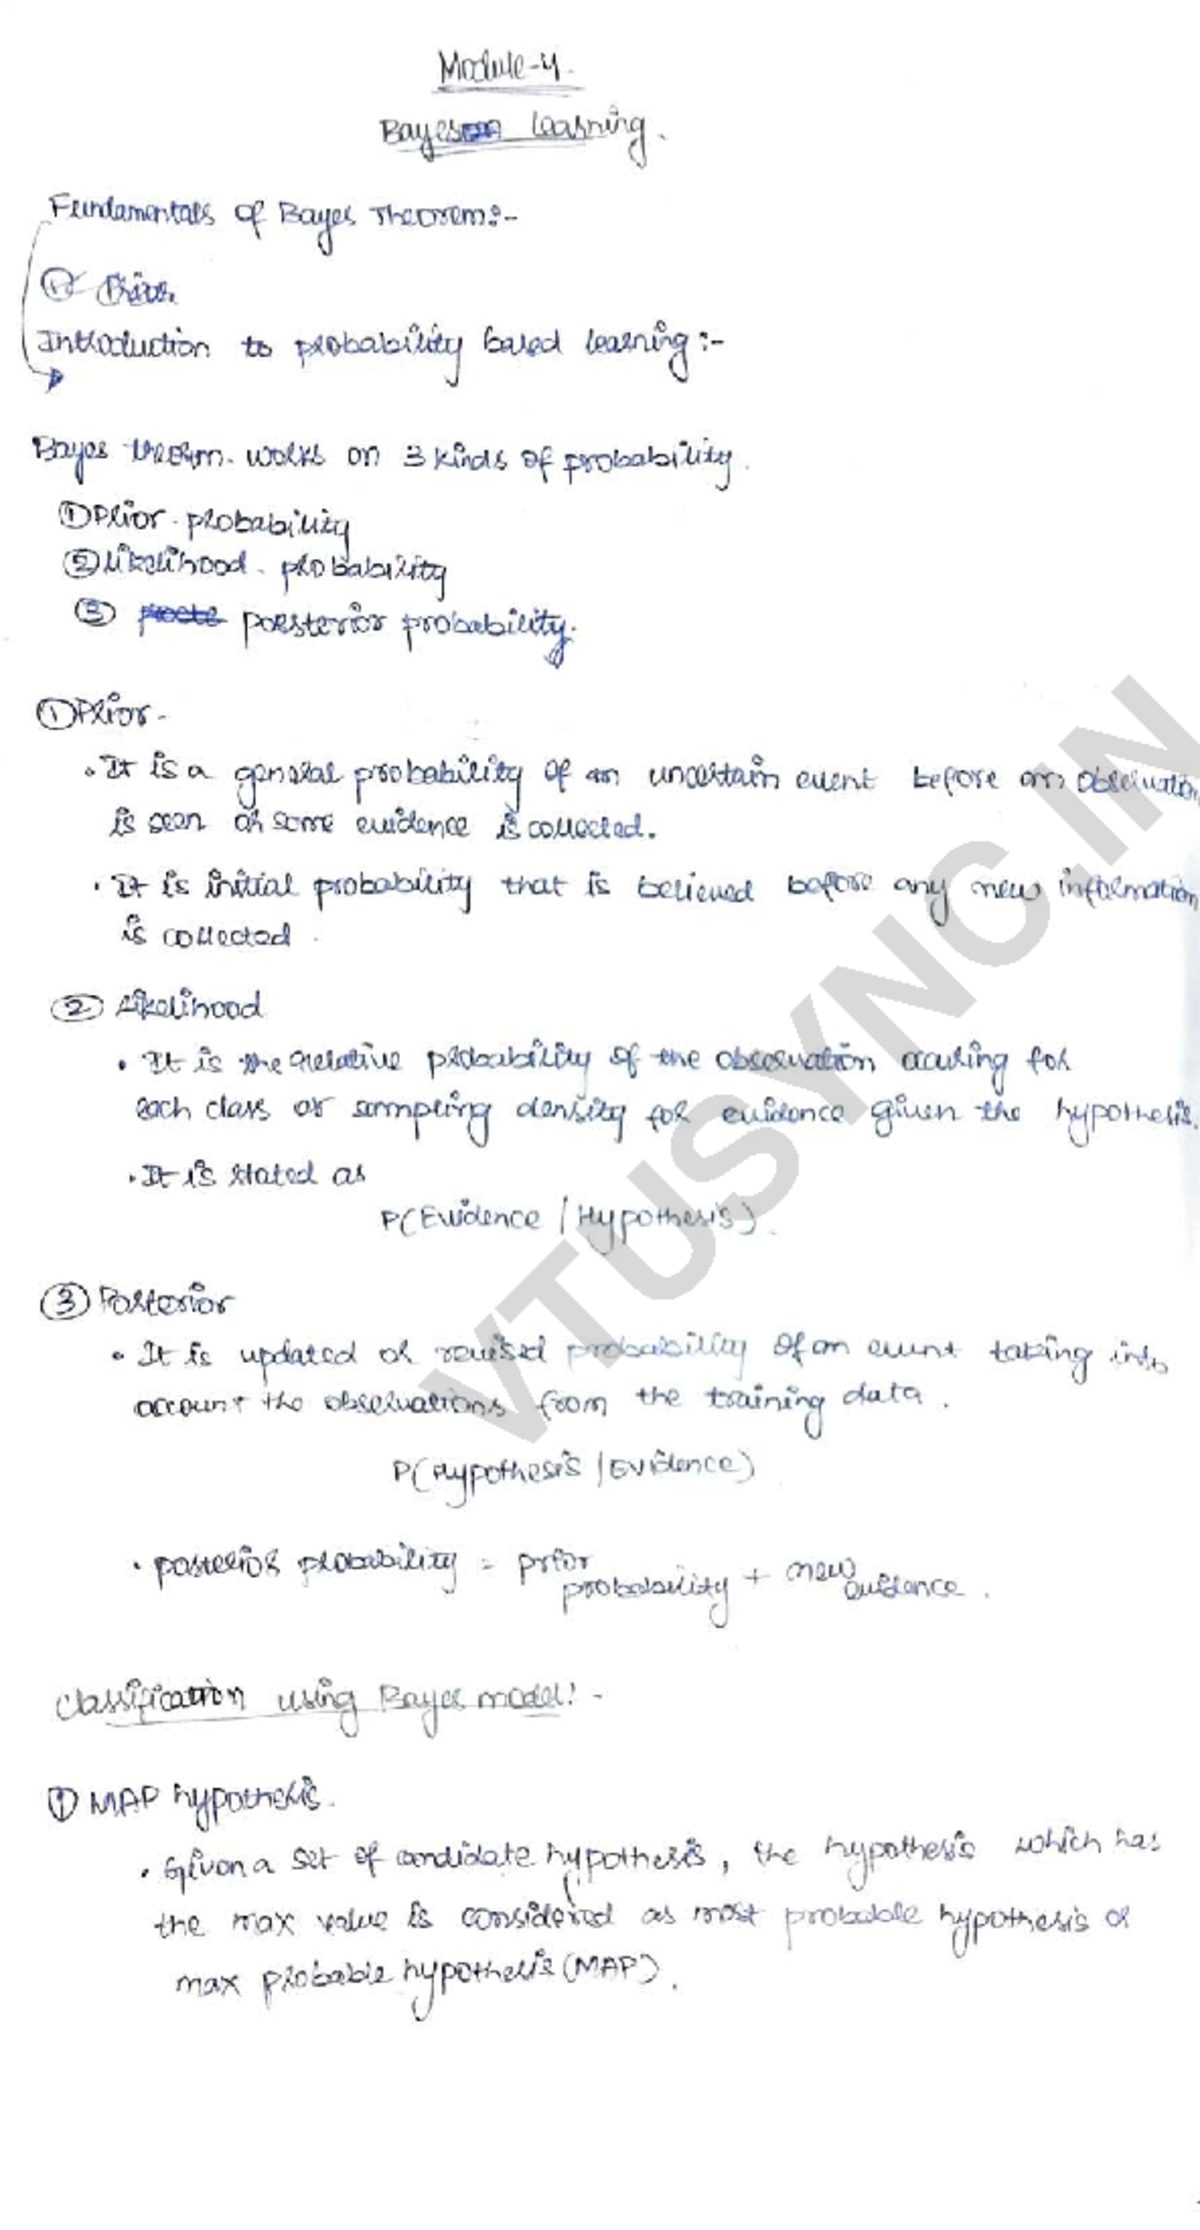 Module-4.
Bayesean learning.
Fundamentals of Bayes Theorem:-
① Prior.
Introduction to probability based learning:-
Bayes theorm. works on 3 kinds of probability.
① Prior. probability
② Likelihood. probability
③ poesterior probability.
① Prior-
• It is a general probability of an uncertain event before an observation
is seen or some evidence is collected.
• It is initial probability that is believed before any new information
is collected.
② Likelihood
• It is the relative probability of the observation occuring for
each class or sampling density for evidence given the hypothesis.
• It is stated as
P(Evidence / Hypothesis).
③ Posterior
• It is updated or revised probability of an event taking into
account the observations from the training data.
P(Hypothesis / Evidence)
• posterior probability = prior probability + new evidence.
Classification using Bayes model:-
① MAP hypothesis.
• Given a set of candidate hypothesis, the hypothesis which has
the max value is considered as most probable hypothesis or
max probable hypothesis (MAP).
VTUSYNC.IN